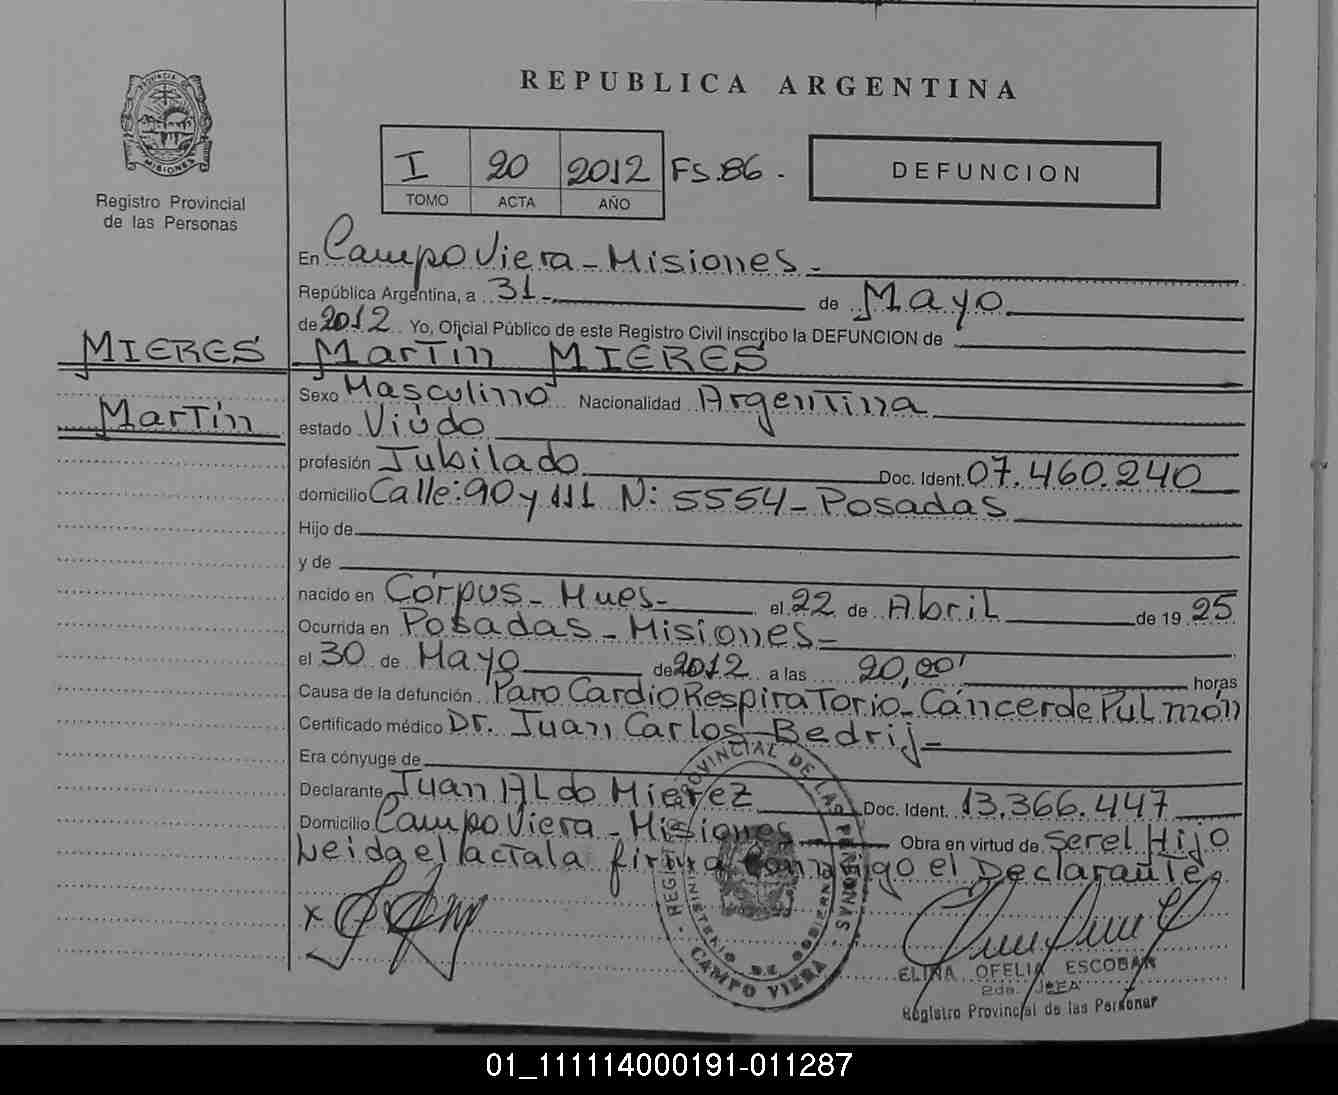 REPUBLICA ARGENTINA
PROVINCIA DE MISIONES
Registro Provincial
de las Personas
I 20 2012 FS.86.
TOMO ACTA AÑO
DEFUNCION
En Campo Viera - Misiones -
República Argentina, a 31 - de Mayo
de 2012 Yo, Oficial Público de este Registro Civil inscribo la DEFUNCION de
MIERES Martín MIERES
Sexo Masculino Nacionalidad Argentina
Martín
estado Viúdo
profesión Jubilado Doc. Ident. 07.460.240
domicilio Calle: 90 y 111 N: 5554 - Posadas
Hijo de
y de
nacido en Córpus - Mnes - el 22 de Abril de 19 25
Ocurrida en Posadas - Misiones -
el 30 de Mayo de 2012 a las 20,00' horas
Causa de la defunción Paro CardioRespiraTorio - Cáncer de Pulmón
Certificado médico Dr. Juan Carlos Bedrij -
Era cónyuge de
Declarante Juan Aldo Mierez Doc. Ident. 13.366.447
Domicilio Campo Viera - Misiones Obra en virtud de Ser el Hijo
Leida el acta la firma conmigo el Declarante
x
REGISTRO PROVINCIAL DE LAS PERSONAS
MINISTERIO DE GOBIERNO
CAMPO VIERA
ELINA OFELIA ESCOBAR
2da. JEFA
Registro Provincial de las Personas
01_111114000191-011287